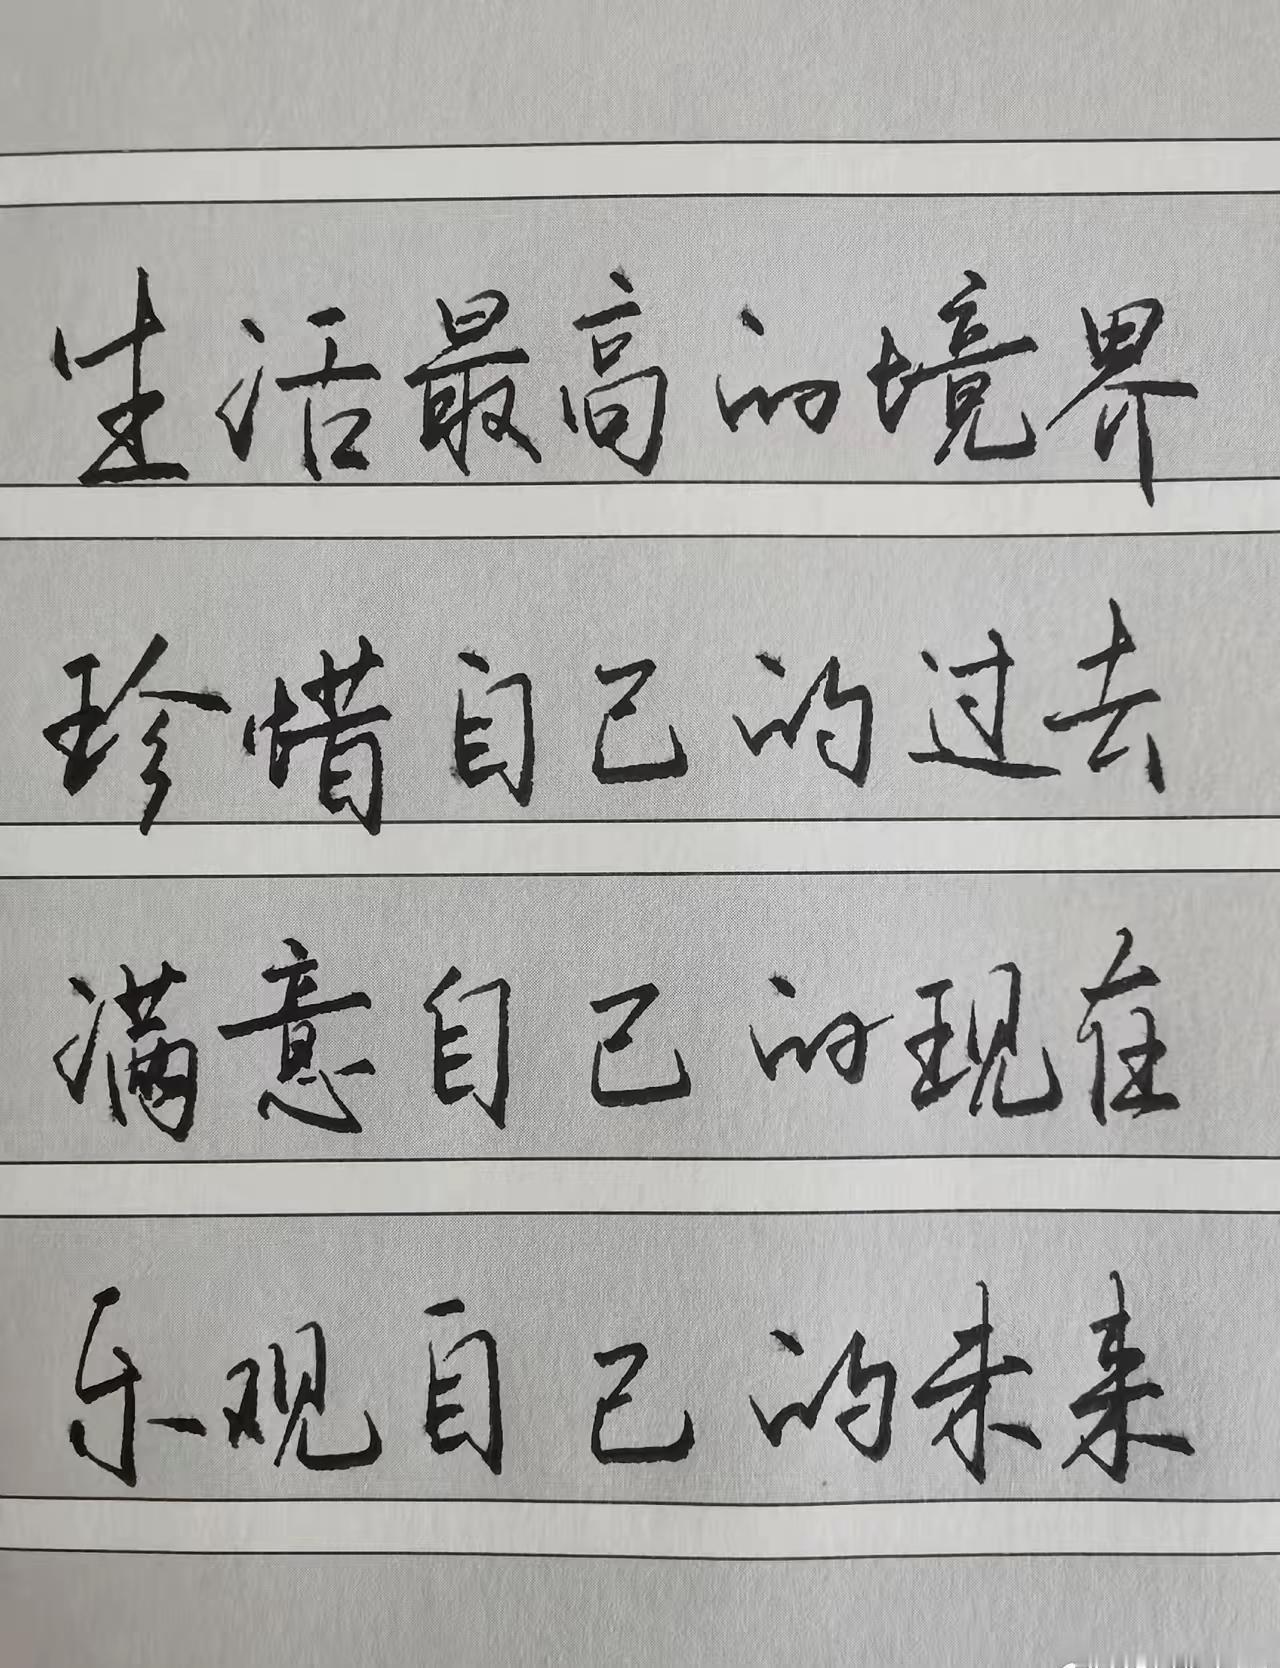 生活最高的境界
珍惜自己的过去
满意自己的现在
乐观自己的未来